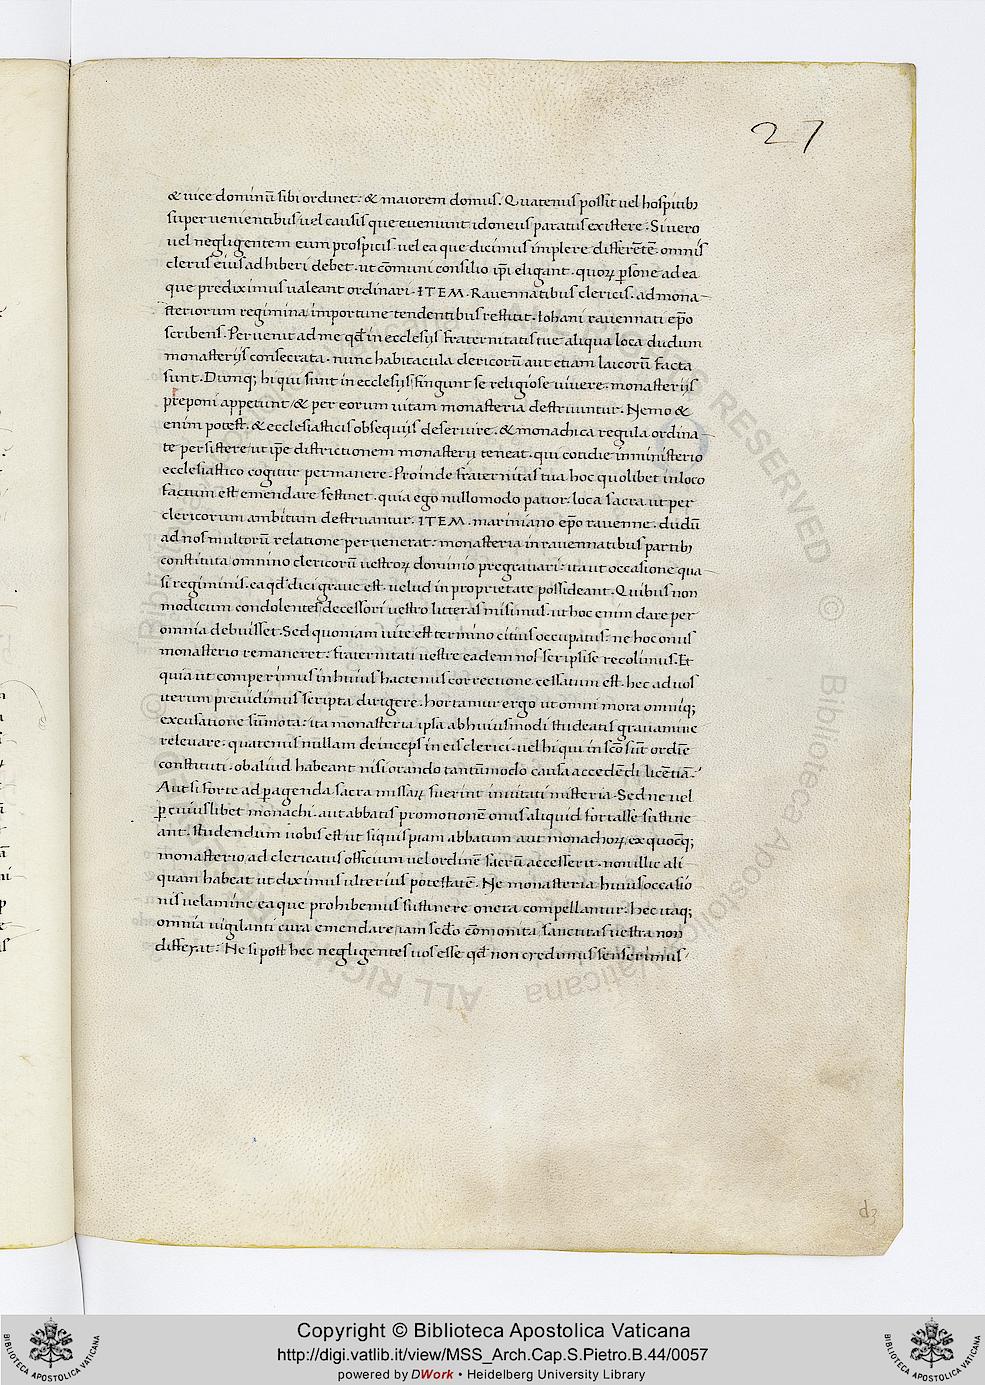 27
& uice dominū sibi ordinet· & maiorem domus. Quatenus possit uel hospitib;
superuenientibus uel causis que eueniunt idoneus paratus existere. Si uero
uel negligentem eum prospicis· uel ea que dicimus implere differētē· omnis
clerus eius adhiberi debet· ut cōmuni consilio ip̄i eligant· quoꝝ ꝑsone ad ea
que prediximus ualeant ordinari. ITEM. Rauennatibus clericis· ad mona-
steriorum regimina importune tendentibus restitit. Iohani rauennati ep̄o
scribens. Peruenit ad me qđ in ecclesijs fraternitatis tue aliqua loca dudum
monasterijs consecrata· nunc habitacula clericorū aut etiam laicorū facta
sunt. Dumq; hi qui sunt in ecclesijs fingunt se religiose uiuere· monasterijs
preponi appetunt/ & per eorum uitam monasteria destruuntur. Nemo &
enim potest· & ecclesiasticis obsequijs deseruire· & monachica regula ordina-
te persistere ut ip̄e districtionem monasterij teneat· qui cotidie in ministerio
ecclesiastico cogitur permanere. Proinde fraternitas tua hoc quolibet in loco
factum est emendare festinet· quia ego nullomodo patior· loca sacra ut per
clericorum ambitum destruantur. ITEM. mariniano ep̄o rauenne· dudū
ad nos multorū relatione peruenerat· monasteria in rauennatibus partib;
constituta omnino clericorū uestroꝝ dominio pregrauari· ita ut occasione qua-
si regiminis· ea qđ dici graue est· uelud in proprietate possideant. Quibus non
modicum condolentes decessori uestro litteras misimus· ut hoc enim dare per
omnia debuisset. Sed quoniam uite est termino citius occupatus· ne hoc onus
monasterio remaneret· fraternitati uestre eadem nos scripsise recolimus. Et
quia ut comperimus in huius hactenus correctione cessatum est· hec ad uos
iterum preuidimus scripta dirigere· hortamur ergo ut omni mora omniq;
excusatione sūmota· ita monasteria ipsa ab huiusmodi studeatis grauamine
releuare· quatenus nullam deinceps in eis clerici· uel hi qui in sc̄o sūt ordīe
constituti· ob aliud habeant nisi orando tantūmodo causa accedēdi licētiā.
Aut si forte ad ꝑagenda sacra missaꝝ fuerint inuitati misteria. Sed ne uel
ꝑ cuiuslibet monachi· aut abbatis promotionē onus aliquid fortasse sustine
ant· studendum uobis est ut si quispiam abbatum aut monachoꝝ ex quocq;
monasterio ad clericatus officium uel ordinē sacrū accesserit· non illic ali-
quam habeat ut diximus ulterius potestatē. Ne monasteria huius occasio
nis uelamine ea que prohibemus sustinere onera compellantur· hec itaq;
omnia uigilanti cura emendare iam sc̄do cōmonita sanctitas uestra non
differat. Ne si post hec negligentes uos esse qđ non credimus senserimus
d3
Copyright © Biblioteca Apostolica Vaticana
http://digi.vatlib.it/view/MSS_Arch.Cap.S.Pietro.B.44/0057
powered by DWork • Heidelberg University Library